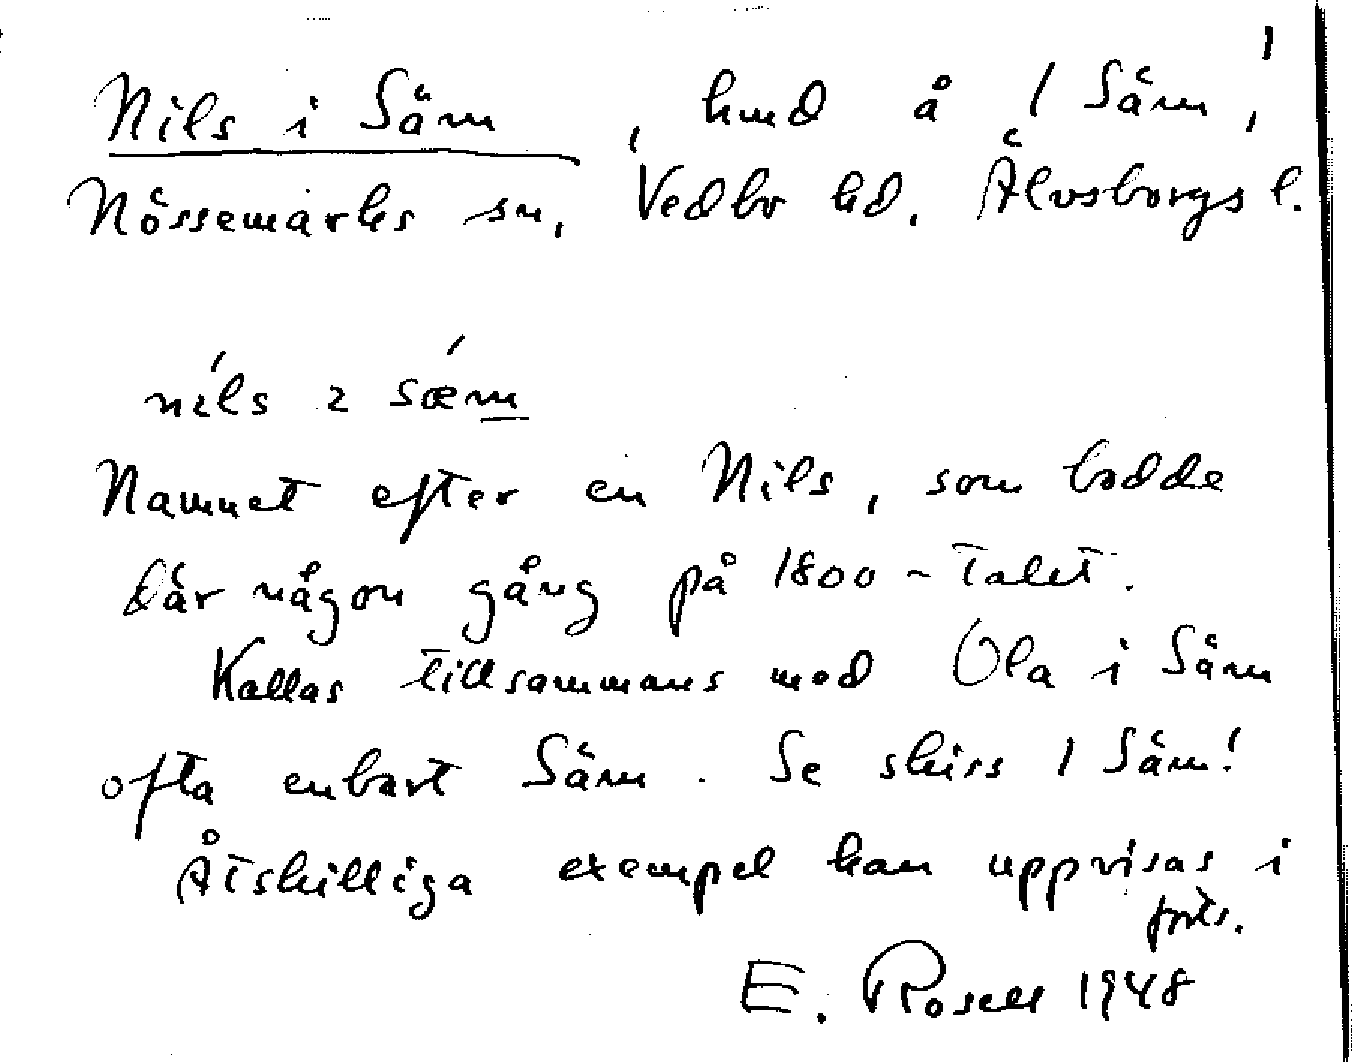 1
Nils i Säm, hmd å 1 Säm,
Nössemarks sn, Vedbo hd. Älvsborgs l.
níls ɩ sǽm
Namnet efter en Nils, som bodde
där någon gång på 1800-talet.
Kallas tillsammans med Ola i Säm
ofta enbart Säm. Se skiss 1 Säm!
Åtskilliga exempel kan uppvisas i
forts.
E. Rosell 1948